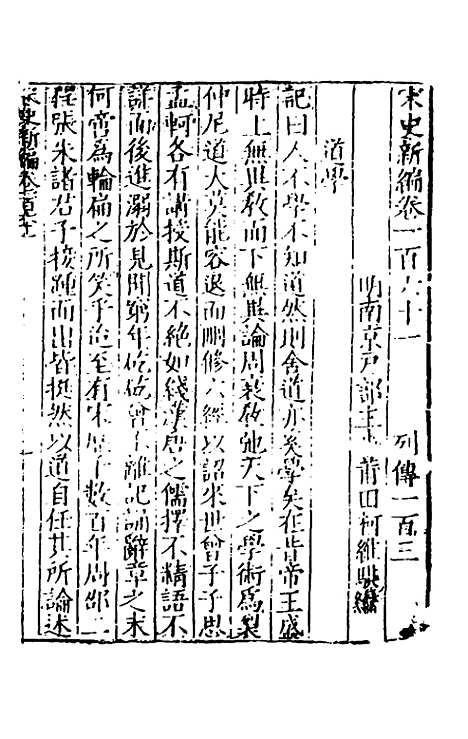 宋史新編卷一百六十一 列傳一百三
明南京戶部主事莆田柯維騏編
道學
記曰人不學不知道然則舍道亦奚學矣在昔帝王盛
時上無異敎而下無異論周衰敎弛天下之學術爲裂
仲尼道大莫能容退而刪修六經以詔來世曾子子思
孟軻各有講授斯道不絕如綫漢唐之儒擇不精語不
詳而後進溺於見聞窮年矻矻曾不離記誦辭章之末
何啻爲輪扁之所笑乎治至有宋歷千數百年周邵二
程張朱諸君子接踵而出皆挺然以道自任其所論述
宋史新編卷一百六十一